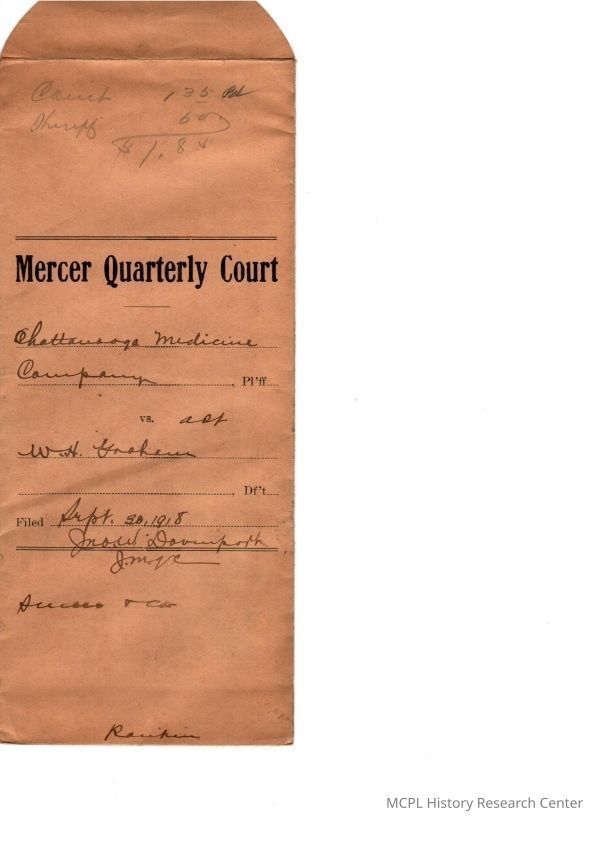 Court 1 35 Pd
Sheriff 50
$ 1.85
Mercer Quarterly Court
Chattanooga Medicine
Company, Pl'ff.
vs.
W.H. Graham
, Df't.
Filed Sept. 30, 1918
Jno. W. Davenport
J.M.Q.C
& Co
Rankin
MCPL History Research Center